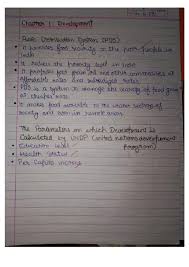 Chapter 1: Development
Public Distribution System (PDS)
• It provides food security to the poor people in
india
• It reduces the poverty level in india
• It provides food grain and other commodities at
affordable rates and subsidized rates
• PDS is a system to manage the scarcity of food grain
at cheaper rate
• It makes food available to the weaker section of
society and even in remote areas
The Parameters on which Development is
Calculated by UNDP (united nations development
program)
• Education level
• Health Status
• Per Capita income